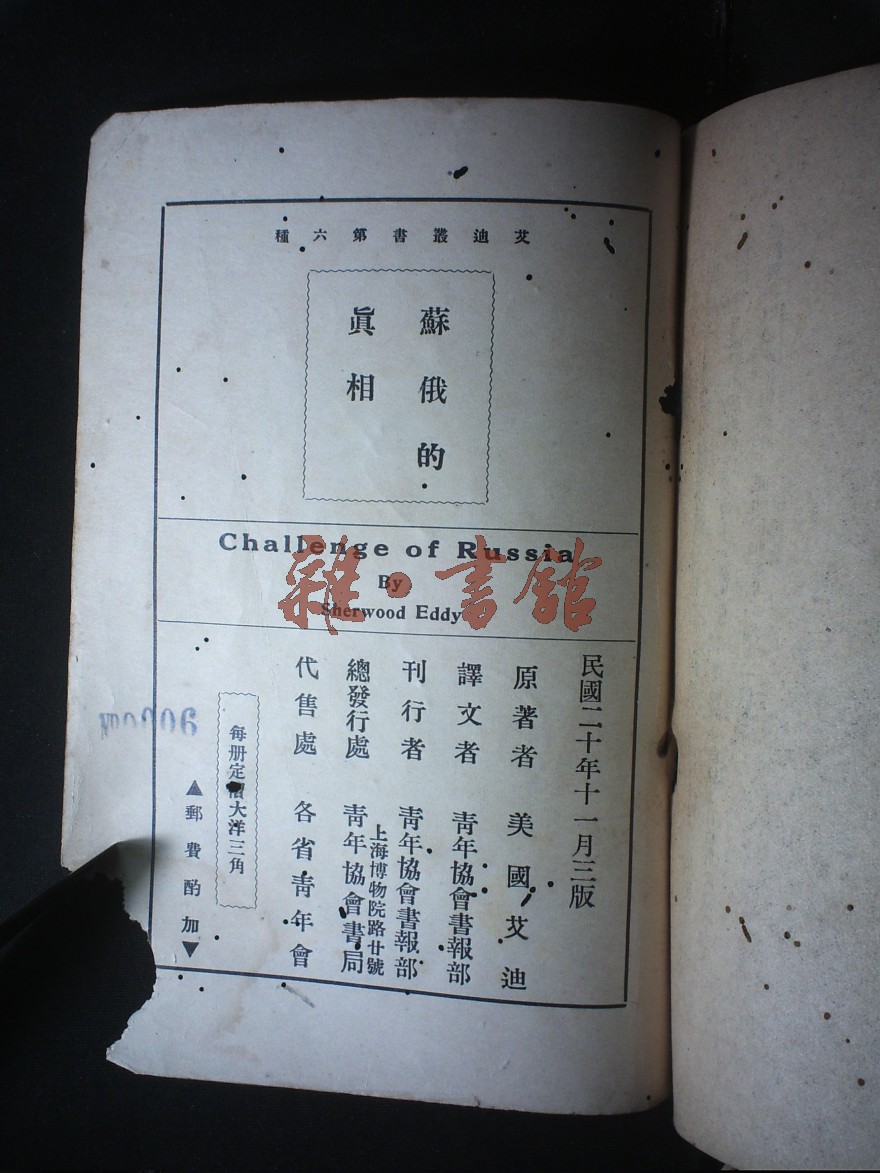 艾迪叢書第六種
蘇俄的
眞相
Challenge of Russia
By
Sherwood Eddy
雜·書館
民國二十年十一月三版
原著者 美國艾迪
譯文者 靑年協會書報部
刊行者 靑年協會書報部
上海博物院路廿號
總發行處 靑年協會書局
代售處 各省靑年會
每册定價大洋三角
▲郵費酌加▼